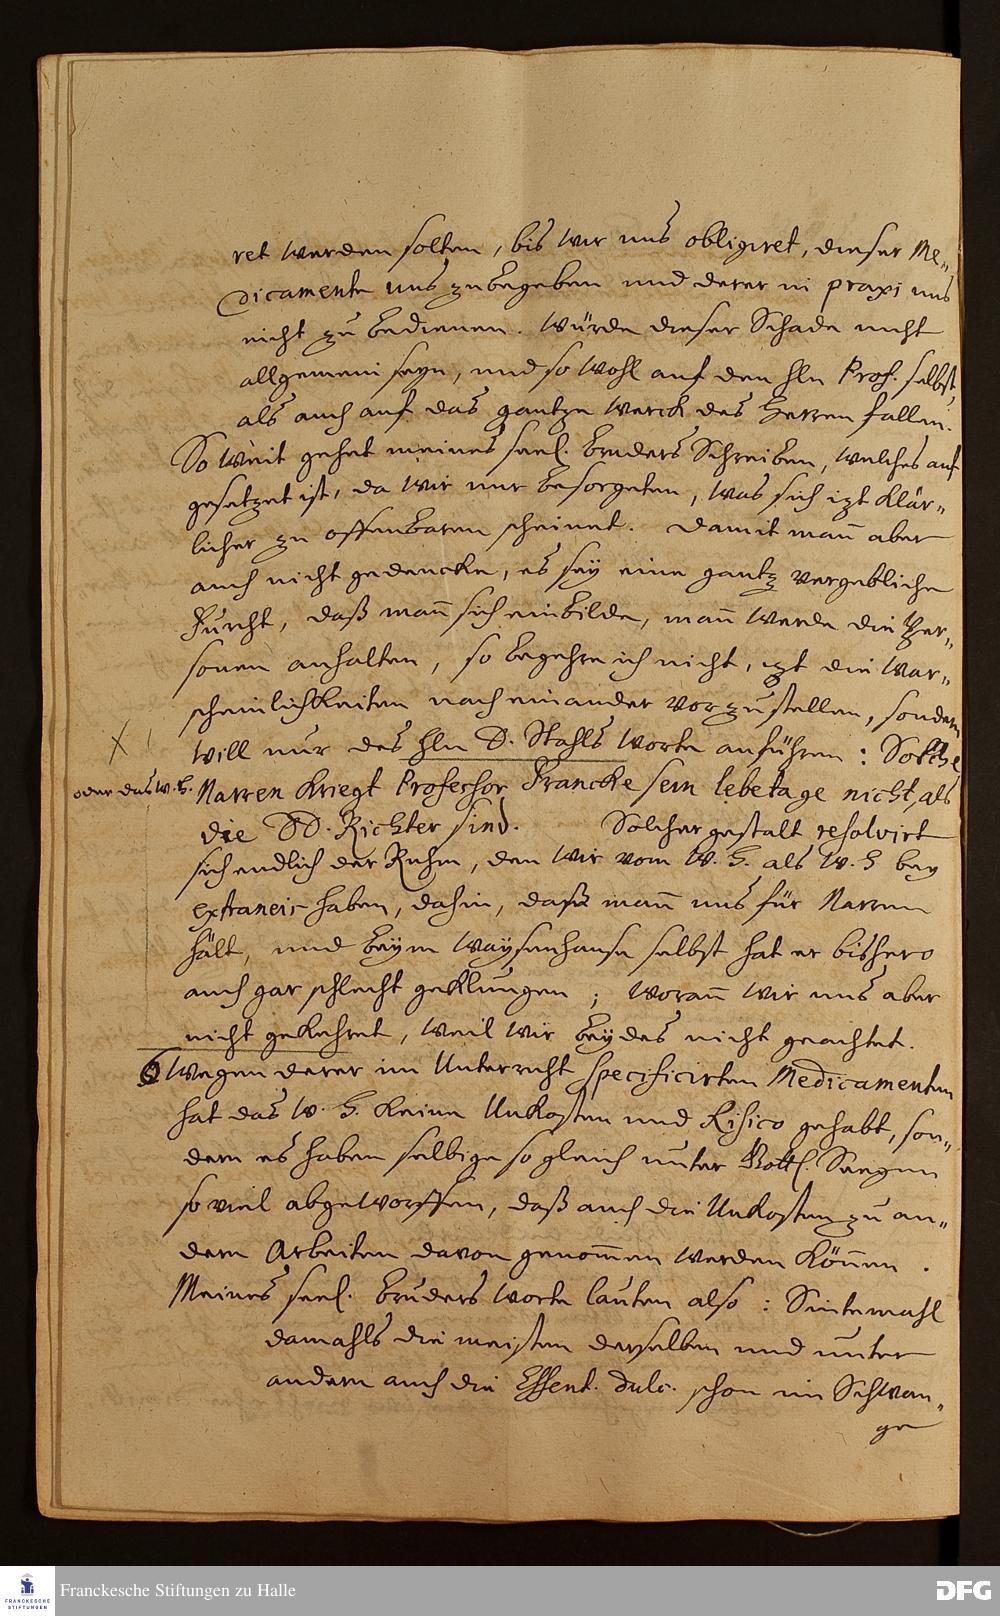 ret werden solten, bis wir uns obligiret, dieser Me„
dicamente uns zubegeben und derer in praxi uns
nicht zu bedienen. Würde dieser Schade nicht
allgemein seyn, und so wohl auf den Hln Prof. selbst,
als auch auf das gantze Werck des Herren fallen.
So weit gehet meines seel. Bruders Schreiben, welches auf
gesetzet ist, da wir nur besorgeten, was sich izt klär„
licher zu offenbaren scheinet. Damit man̄ aber
auch nicht gedencke, es sey eine gantz vergebliche
Furcht, daß man̄ sich einbilde, man̄ werde die Per„
sonen anhalten, so begehre ich nicht, izt die War„
scheinlichkeiten nach einander vorzustellen, sondern
X will nur des Hln D. Stahls Worte anführen: Solche
oder das W. H. Narren kriegt Professor Francke sein lebetage nicht, als
die DD. Richter sind. Solcher gestalt resolvirt
sich endlich der Ruhm, den wir vom W. H. als W. H bey
extraneis haben, dahin, daß man̄ uns für Narren
hält, und beym Waysenhause selbst hat er bishero
auch gar schlecht geklungen; woran̄ wir uns aber
nicht gekehret, weil wir beydes nicht geachtet.
6 Wegen derer im Unterricht specificirten Medicamenten
hat das W. H. keine Unkosten und Risico gehabt, son„
dern es haben selbige so gleich unter Göttl. Seegen
so viel abgeworffen, daß auch die Unkosten zu an„
dern Arbeiten davon genom̄en werden kön̄en.
Meines seel. Bruders Worte lauten also: Sintemahl
damahls die meisten derselben und unter
andern auch die Essent. dulc. schon im Schwan„
ge
Franckesche Stiftungen zu Halle
FRANCKESCHE
STIFTUNGEN
DFG